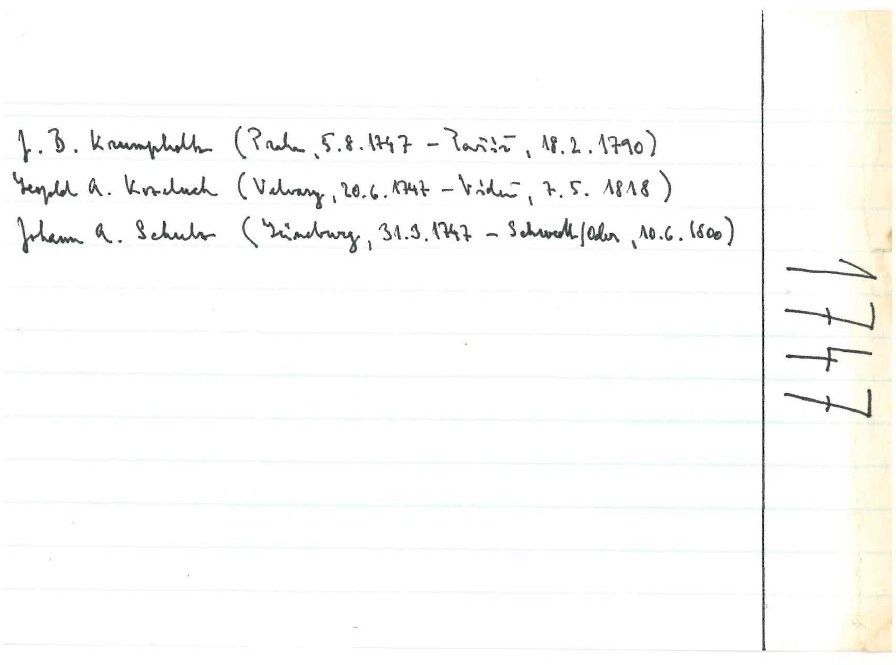 J. B. Krumpholtz (Praha, 5.8.1747 – Paříž, 18.2.1790)
Leopold A. Kozeluch (Velvary, 20.6.1747 – Vídeň, 7.5.1818)
Johann A. Schulz (Lüneburg, 31.3.1747 – Schwedt/Oder, 10.6.1800)
1747